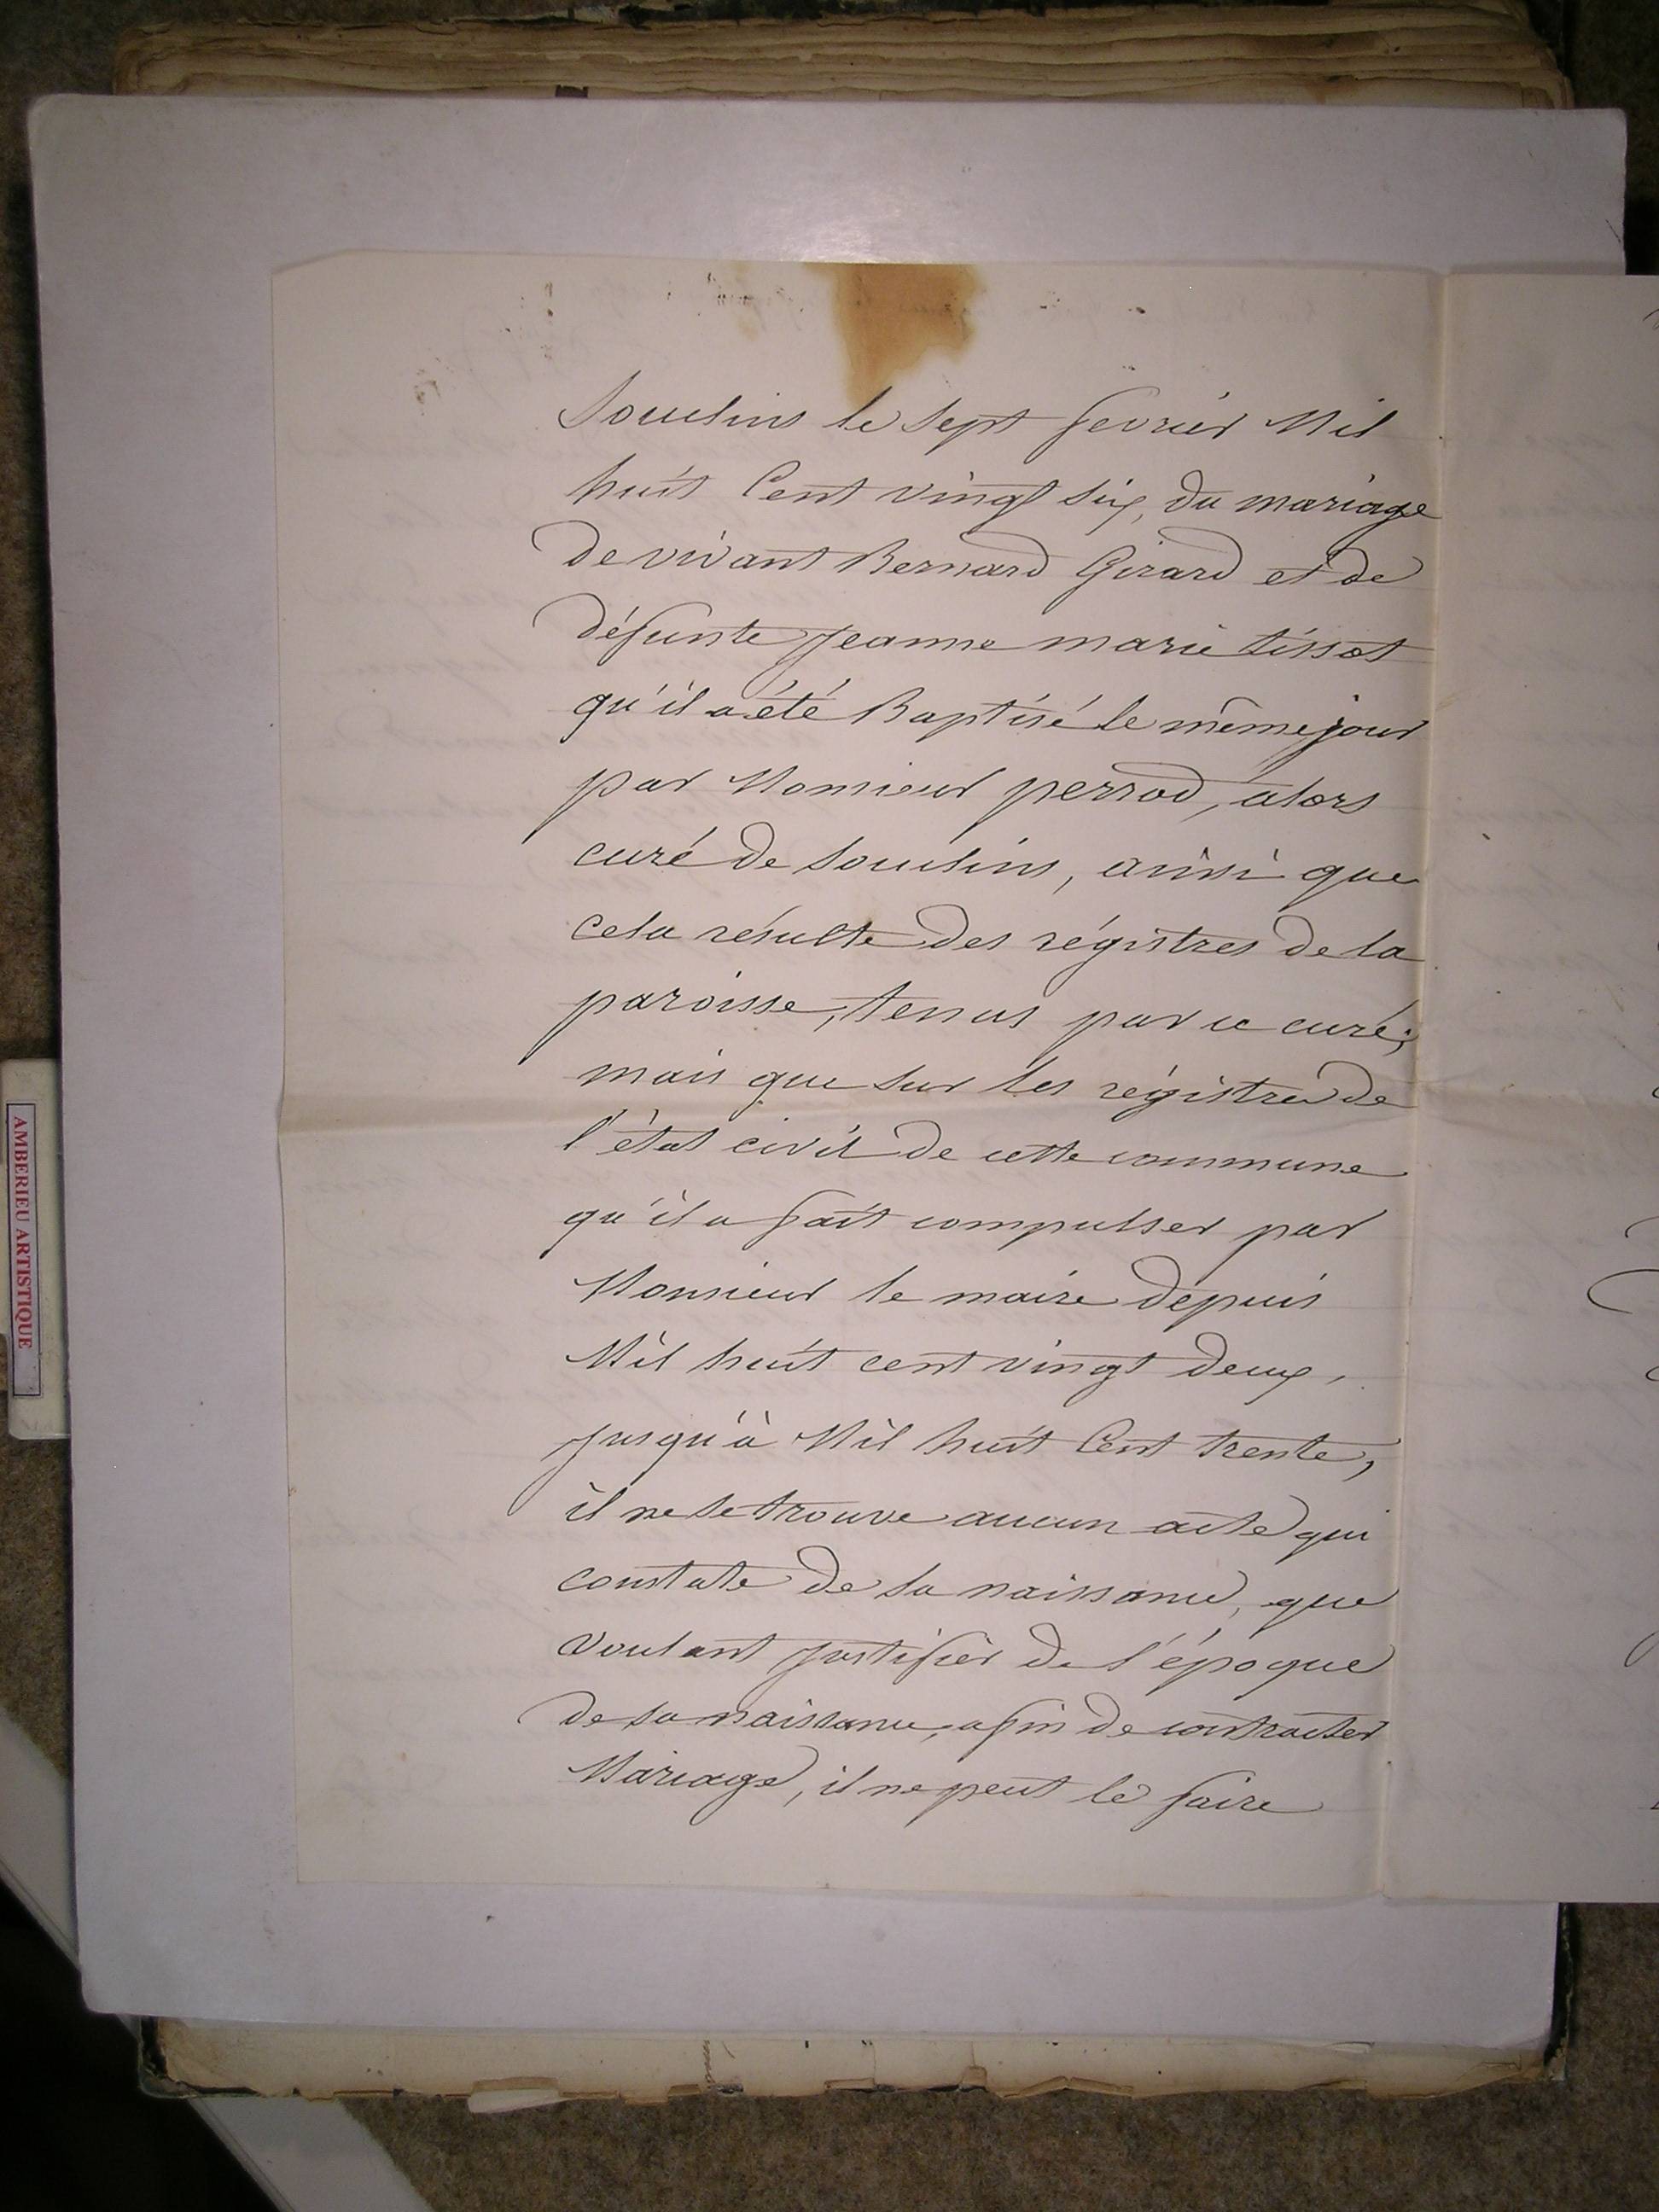 Souclins le Sept fevrier Mil
huit Cent vingt six, du mariage
de vivant Bernard Girard et de
défunte Jeanne marie tissot
qu'il a été Baptisé le même jour
par Monsieur perrod, alors
curé de Souclins, ainsi que
cela résulte des régistres de la
paroisse, tenus par ce curé;
mais que sur les régistres de
l'état civil de cette commune
qu'il a fait compulser par
Monsieur le maire depuis
Mil huit cent vingt deux,
jusqu'à Mil huit Cent trente,
il ne se trouve aucun acte qui
constate de sa naissance, que
voulant justifier de l'époque
de sa naissance, afin de contracter
Mariage, il ne peut le faire
AMBERIEU ARTISTIQUE